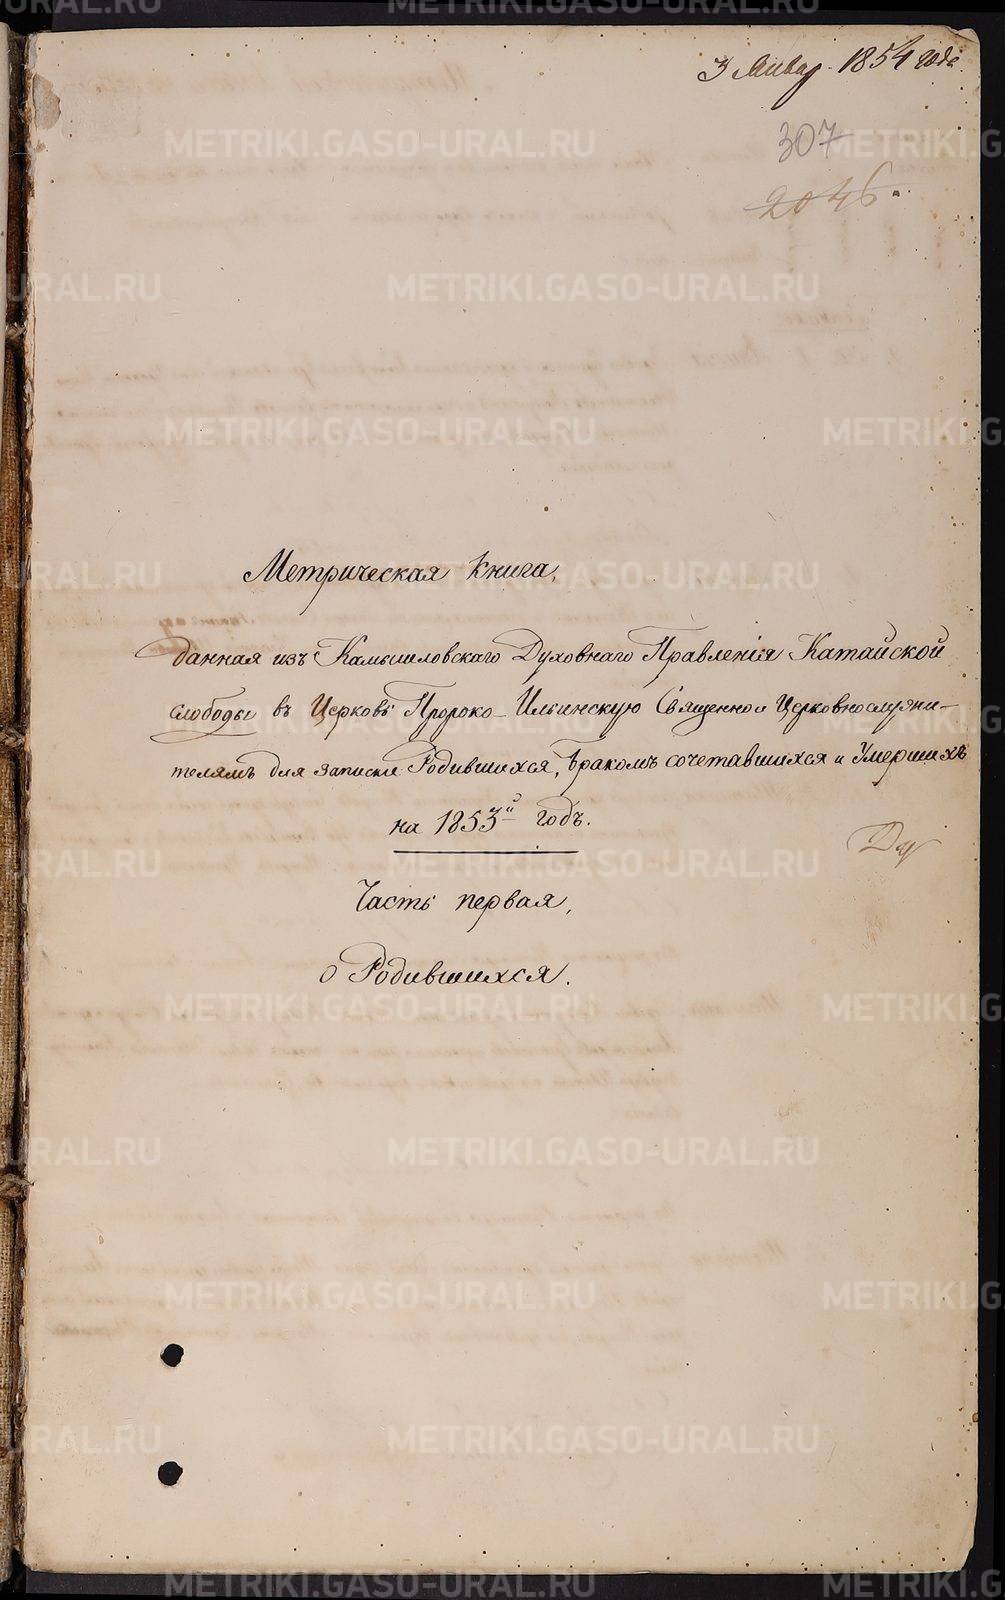 3 Январ. 1854 года.
307
2046.
Метрическая Книга,
данная изъ Камышловскаго Духовнаго Правленія Катайской
слободы въ Церковь Пророко-Ильинскую Священно и Церковнослужи-
телямъ для записки Родившихся, бракомъ сочетавшихся и Умершихъ
на 1853й годъ.
Часть первая,
о Родившихся.
METRIKI.GASO-URAL.RU